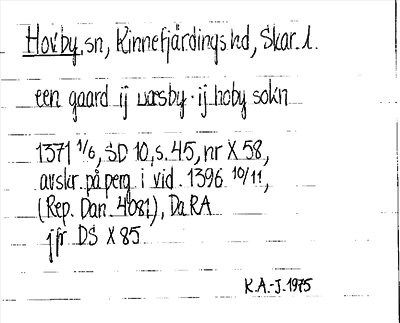 Hovby sn, Kinnefjärdings hd, Skar. l.
een gaard ij wæsby · ij hoby sokn
1371 1/6, SD 10, s. 45, nr X 58,
avskr. på perg i vid. 1396 10/11,
(Rep. Dan. 4081), DaRA
jfr DS X 85
K.A.-J. 1975